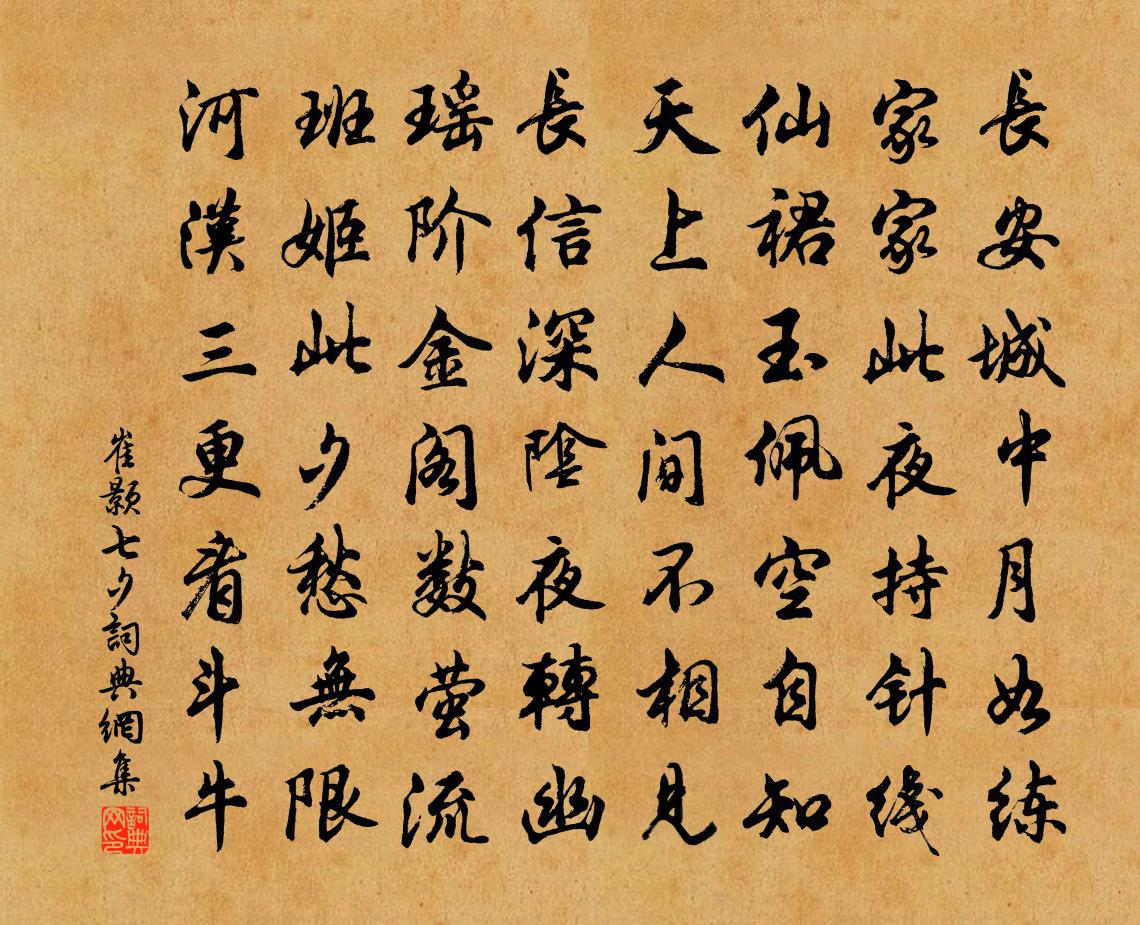 長安城中月如练
家家此夜持针线
仙裙玉佩空自知
天上人间不相見
長信深陰夜轉幽
瑶阶金阁数萤流
班姬此夕愁無限
河漢三更看斗牛
崔颢七夕詞典網集
詞典网印